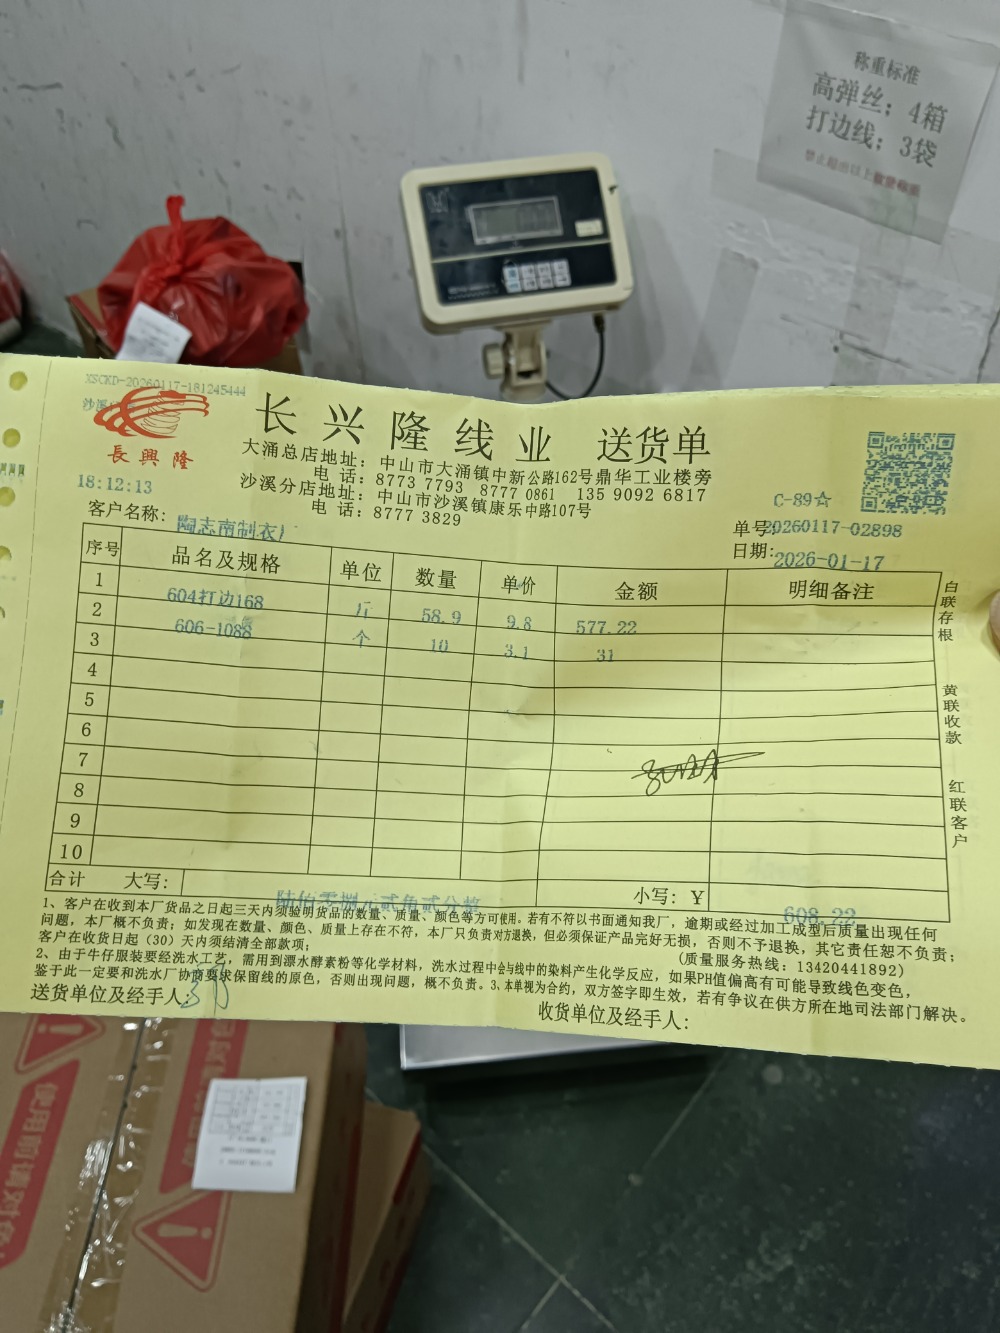 称重标准
高弹丝；4箱
打边线；3袋
XSCKD-20260117-181245444
沙溪
長興隆
长兴隆线业 送货单
大涌总店地址：中山市大涌镇中新公路162号鼎华工业楼旁
电 话：8773 7793 8777 0861 135 9092 6817
沙溪分店地址：中山市沙溪镇康乐中路107号
电 话：8777 3829
18:12:13
C-89☆
客户名称：陶志南制衣厂
单号：20260117-02898
日期：2026-01-17
序号 品名及规格 单位 数量 单价 金额 明细备注
1 604打边168 斤 58.9 9.8 577.22
2 606-1088 个 10 3.1 31
3
4
5
6
7
8
9
10
合计 大写： 陆佰零捌元贰角贰分整 小写：￥ 608.22
白联存根
黄联收款
红联客户
1、客户在收到本厂货品之日起三天内须验明货品的数量、质量、颜色等方可使用。若有不符以书面通知我厂，逾期或经过加工成型后质量出现任何
问题，本厂概不负责；如发现在数量、颜色、质量上存在不符，本厂只负责对方退换，但必须保证产品完好无损，否则不予退换，其它责任恕不负责；
客户在收货日起（30）天内须结清全部款项；
(质量服务热线：13420441892)
2、由于牛仔服装要经洗水工艺，需用到漂水酵素粉等化学材料，洗水过程中会与线中的染料产生化学反应，如果PH值偏高有可能导致线色变色，
鉴于此一定要和洗水厂协商要求保留线的原色，否则出现问题，概不负责。3、本单视为合约，双方签字即生效，若有争议在供方所在地司法部门解决。
送货单位及经手人：
收货单位及经手人：